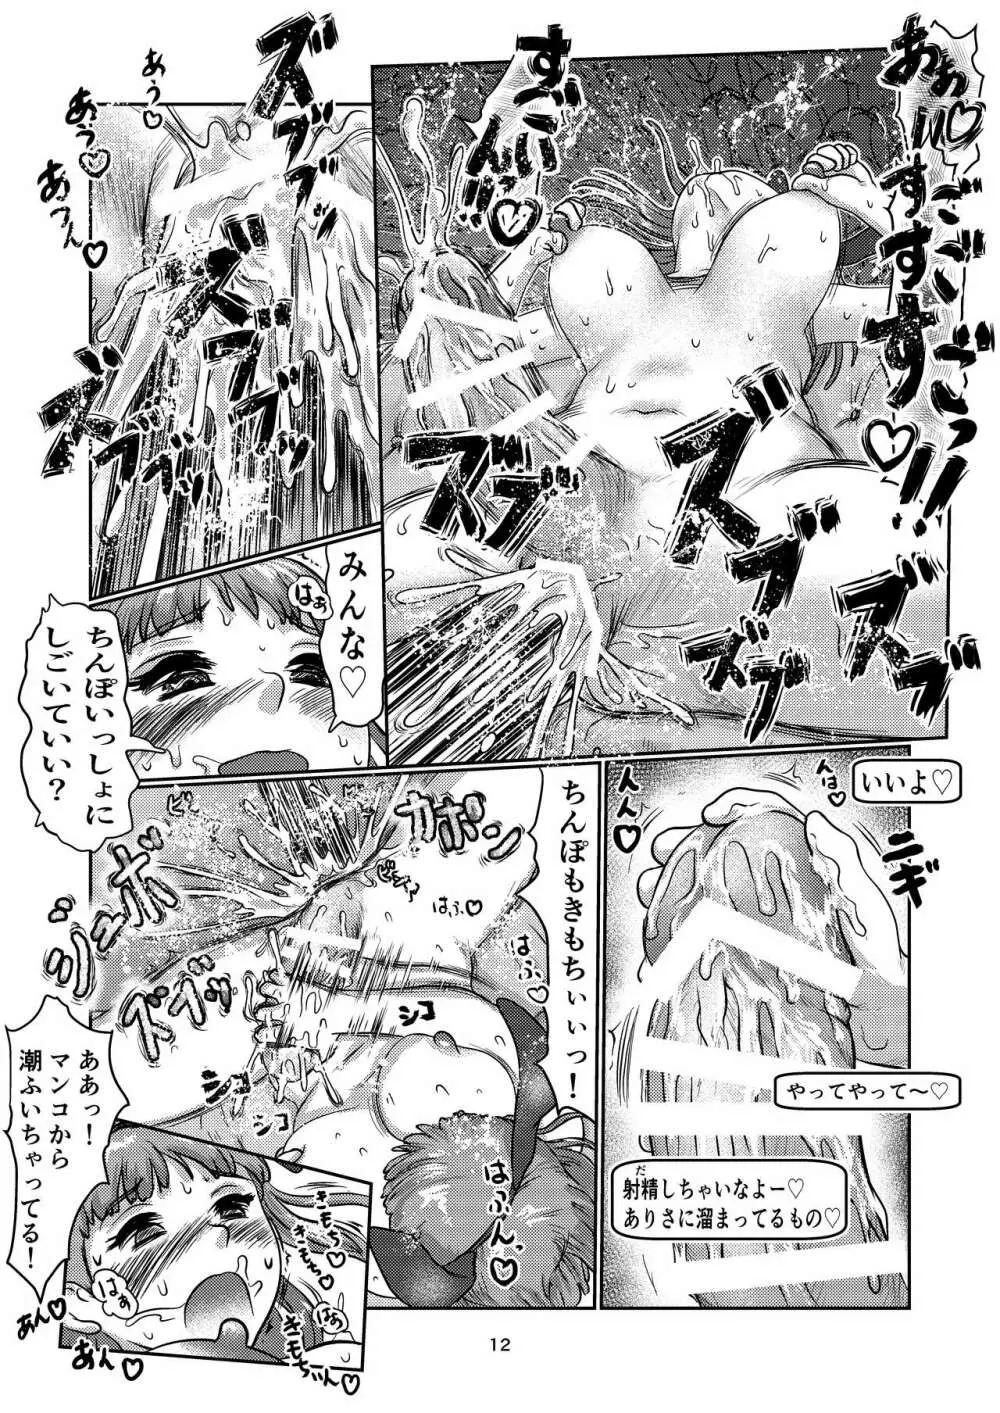 ああぁ♡
すすすすごごごごごっ!!♡
すごいいんんっ!!♡
ズブズブズブッ
ズブズブッ
あぅ♡
あぅ♡
あっん♡
ズズズッ
みんな♡
はぁ
ちんぽいっしょに
しごいていい?
いいよ♡
んん♡
ニギ
やってやって〜♡
射精しちゃいなよー♡
だ
ありさに溜まってるもの♡
ちんぽもきもちぃいっ!
カポン
ジュボボ
ズブブッ
はふ♡
はふ♡
はふん、
シコ
シコ
シコ
ああっ!
マンコから
潮ふいちゃってる!
きもち♡
きもち♡
きもちいん♡
はぁ
はぁ
あん♡
あん♡
12